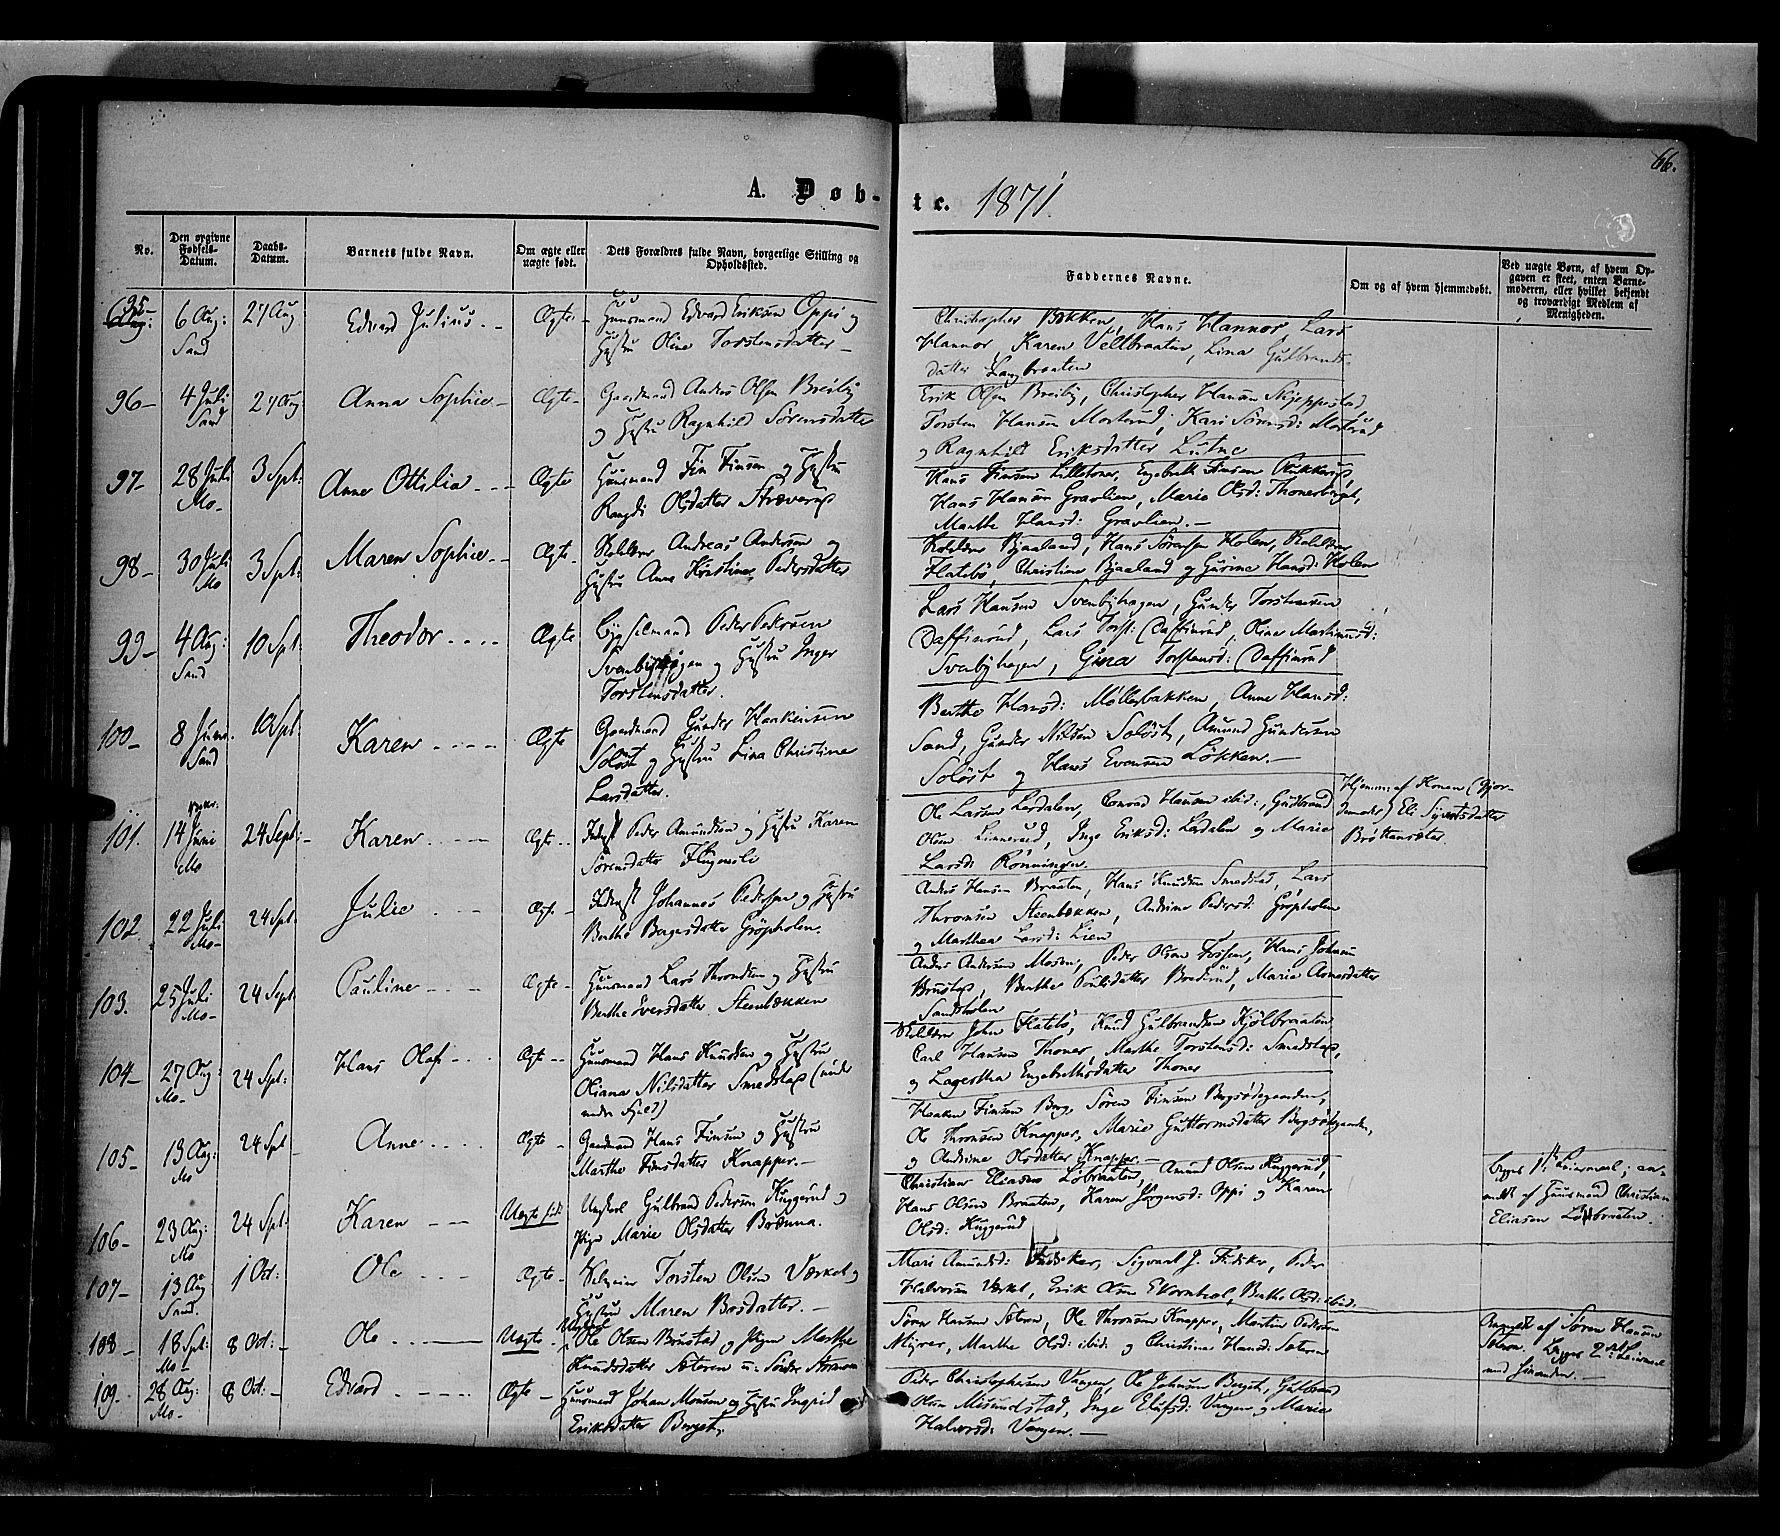 66.
A. Døb-
te. 1871.
No.
Den opgivne Fødsels-Datum.
Daabs-Datum.
Barnets fulde Navn.
Om ægte eller uægte født.
Dets Forældres fulde Navn, borgerlige Stilling og Opholdssted.
Faddernes Navne.
Om og af hvem hjemmedøbt.
Ved uægte Børn, af hvem Opgaven er skeet, enten Barnemoderen, eller hvilket bekjendt og troværdigt Medlem af Menigheden.
95 6 Aug: Sand 27 Aug Edvard Julius Ægte Huusmand Edvard Eriksen Oppi og
Hustru Oline Torstensdatter
Christopher Bakken, Hans Hannor, Lars
Hannor, Karen Veltbraaten, Lina Gulbrands-
datter Langbraaten
96 4 Juli Sand 27 Aug Anna Sophie Ægte Gaardmand Anders Olsen Breiby
og Hustru Ragnhild Sørensdatter
Erik Olsen Breiby, Christopher Hansen Skjeppestad
Torsten Hansen Morterud, Kari Sørensd: Morterud
og Ragnhild Eriksdatter Lutne
97 28 Juli Mo 3 Sept: Anne Ottilia Ægte Huusmand Fin Finsen og Hustru
Rangdi Olsdatter
Hans Finsen Lilletoner, Engebret Finsen
Hans Hansen Gravlien, Marie Olsd: Thonerberget,
Marthe Hansd: Gravlien.
98 30 Juli Mo 3 Spt: Maren Sophie Ægte Andreas Andersen og
Hustru Anne Kristine Pedersdatter
Bjaaland, Hans Sørensen Holen,
Flatebø, Christine Bjaaland og Gurine Hansd: Holen
99 4 Aug: Sand 10 Spt. Theodor Ægte Peder Pedersen
Svenbyhagen og Hustru Inger
Torstensdatter.
Lars Hansen Svenbyhagen, Gunder Torstensen
Daffinrud, Lars Torst: Daffinrud, Oline Martinusd:
Svenbyhagen, Gina Torstensd: Daffinrud
100 8 Juni Sand 10 Spt: Karen Ægte Gaardmand Gunder Haakensen
Soløst og Hustru Lina Christine
Larsdatter.
Berthe Hansd: Møllerbakken, Anne Hansd:
Sand, Gunder Nilsen Soløst, Amund Gundersen
Soløst og Hans Evensen Løkken.
101. 14 Juni Mo 24 Sept: Karen Ægte Inderst Peder Amundsen og Hustru Karen
Sørensdatter Flugenoli
Ole Larsen Lerdalen, Conrad Hansen ibid:, Gudbrand
Olsen Linnerud, Inge Eriksd: Lerdalen og Marie
Larsd: Rønningen
Hjemme af Konen (Gjor-
demoder) Eli Syvertsdatter
Brøttensæter.
102. 22 Juli Mo 24 Spt: Julie Ægte Inderst Johannes Pedersen og Hustru
Berthe Børgesdatter Grøpholen.
Anders Hansen Braaten, Hans Knudsen Smedstad, Lars
Thronsen Steenbækken, Andrine Pedersd: Grøpholen
og Marthea Larsd: Lien
103. 25 Juli Mo 24 Sept Pauline Ægte Huusmand Lars Throndsen og Hustru
Berthe Iversdatter Steenbækken
Anders Andersen Mosen, Peder Olsen Fossen, Hans Johnsen
Brustad, Berthe Poulsdatter Bredrud, Marie Arnesdatter
Sandholen
104 27 Aug: Mo 24 Spt: Hans Olaf Ægte Huusmand Hans Knudsen og Hustru
Oliana Nilsdatter Smedstad
John Flatebø, Knud Gulbrandsen Kjølbraaten
Carl Hansen Thoner, Marthe Torstensd: Smedstad,
og Lagertha Engebrethsdatter Thoner
105 13 Aug: Mo 24 Spt Anne Ægte Gaardmand Hans Finsen og Hustru
Marthe Finsdatter Knapper.
Haaken Finsen Berg, Søren Finsen Bergsødegaarden,
Ole Thronsen Knapper, Marie Guttormsdatter Bergsødegaarden,
og Andrine Olsdatter Knapper.
106 23 Aug: Mo 24 Spt: Karen Uægte født Ungkarl Gulbrand Pedersen Kuggerud og
Pige Marie Olsdatter Brænna.
Christian Eliasen Løbraaten, Amund Olsen Kuggerud,
Hans Olsen Braaten, Karen Jørgensd: Oppi og Karen
Olsd: Kuggerud
Begges 1ste Leiermaal; an-
meldt af Huusmand Christian
Eliasen Løbraaten.
107 13 Aug Sand. 1 Oct: Ole Ægte Torsten Olsen Værket og
Hustru Maren Bosdatter.
Mari Amundsd: Fideker, Sigvart J. Fideker, Peder
Halvorsen Værket, Erik Olsen, Berthe Olsd: ibid.
108 18 Spt: Mo 8 Oct: Ole Uægte Ungkarl Ole Olsen Brustad og Pigen Marthe
Knudsdatter Sæteren u: Søndre Strøm
Søren Hansen Sæteren, Ole Thronsen Knapper, Martin Pedersen
Myrer, Marthe Olsd: ibid: og Christine Hansd: Sæteren
Anmeldt af Søren Hansen
Sæteren. Begges 2det Leiermaal
med hinanden.
109. 28 Aug: Mo 8 Oct: Edvard Ægte Huusmand Johan Monsen og Hustru Ingrid
Eriksdatter Berget
Peder Christophersen Vangen, Ole Johnsen Berget, Gulbrand
Olsen Misundstad, Inge Elefsd: Vangen og Marie
Halvorsd: Vangen.